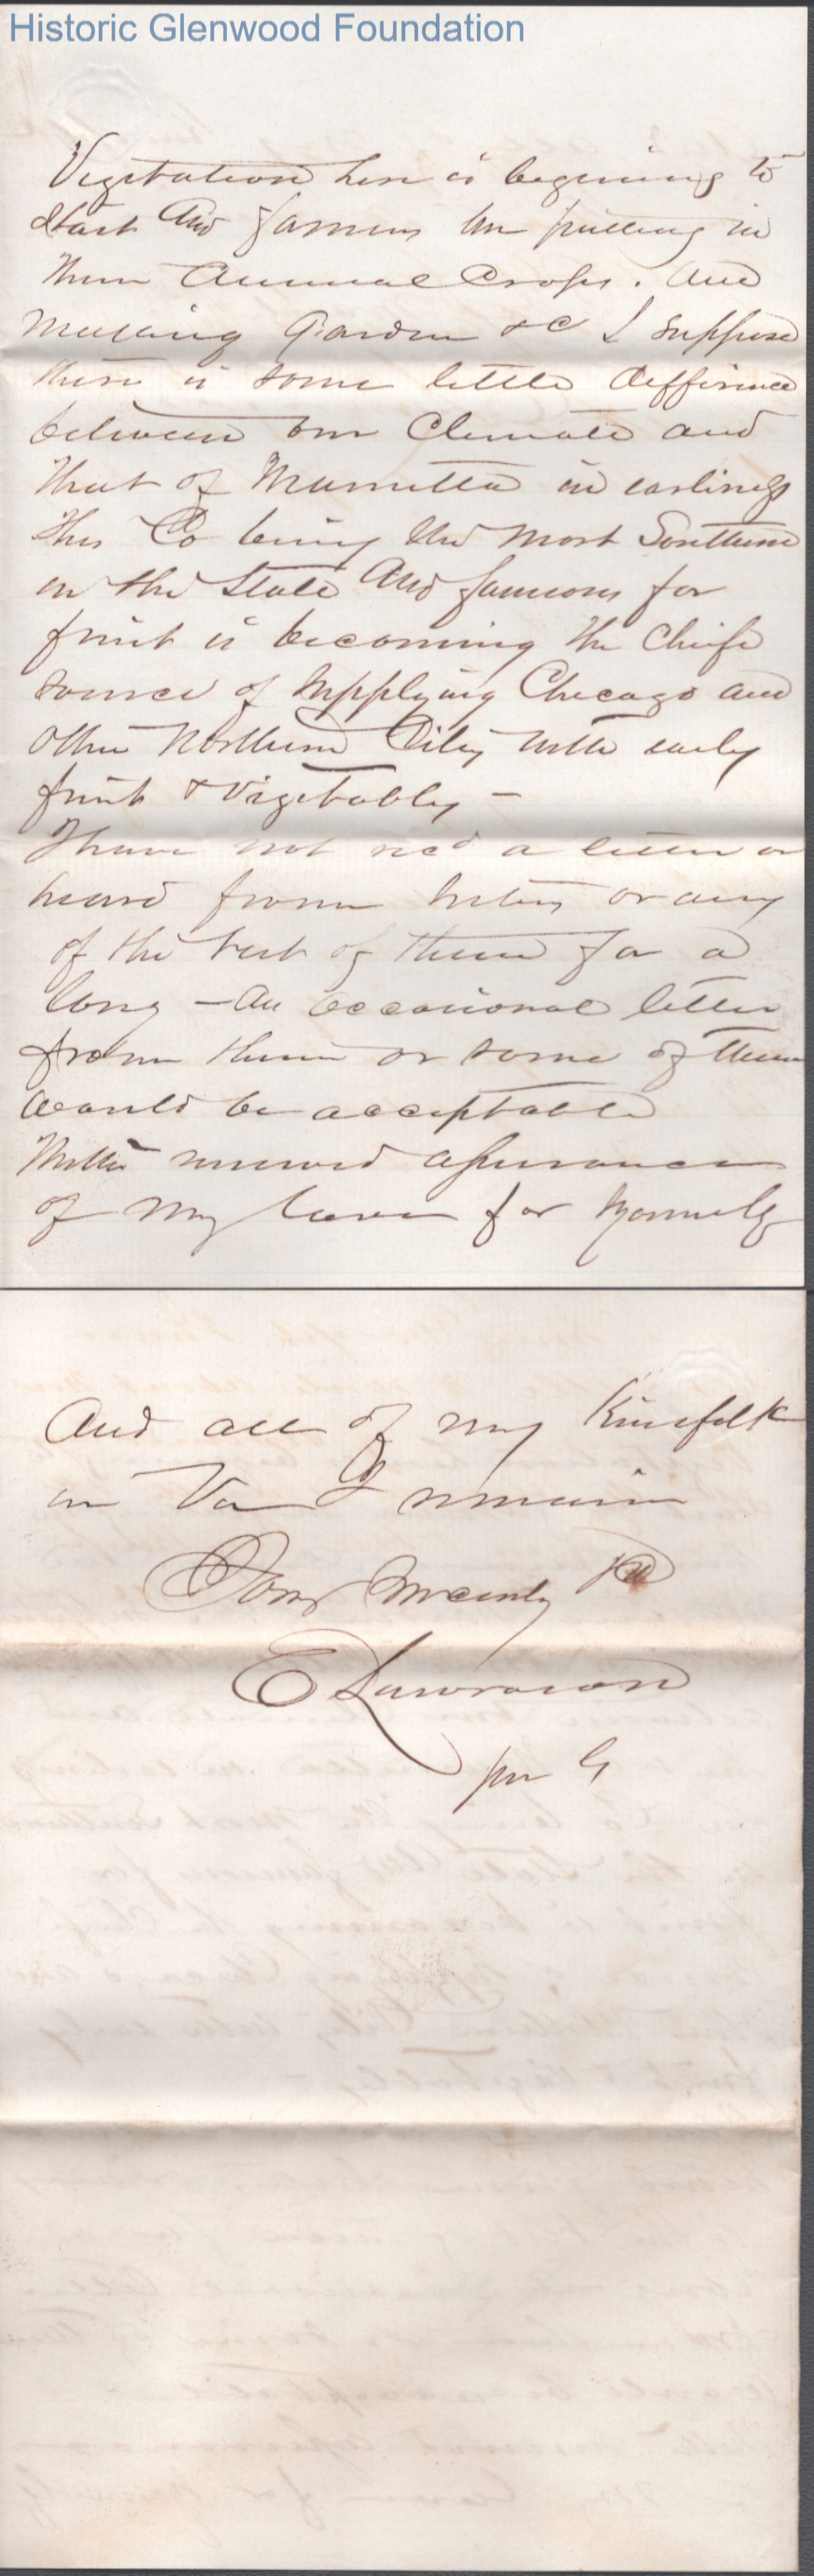 Historic Glenwood Foundation
Vegitation here is begining to
start and farmers are putting in
their annual Crops. and
making Garden &c I suppose
there is some little difference
between our Climate and
that of Marietta in earliness
this Co being the most Southern
in the State and famous for
fruit is becoming the Chief
source of supplying Chicago and
other Northern Citys with early
fruit & Vegetables –
I have not recd a letter or
heard from or any
of the rest of them for a
long – an occasional letter
from them or some of them
would be acceptable
With renewed assurances
of my love for yourself
And all of my Kinsfolk
in Va I remain
Your
E Lawrason
per G